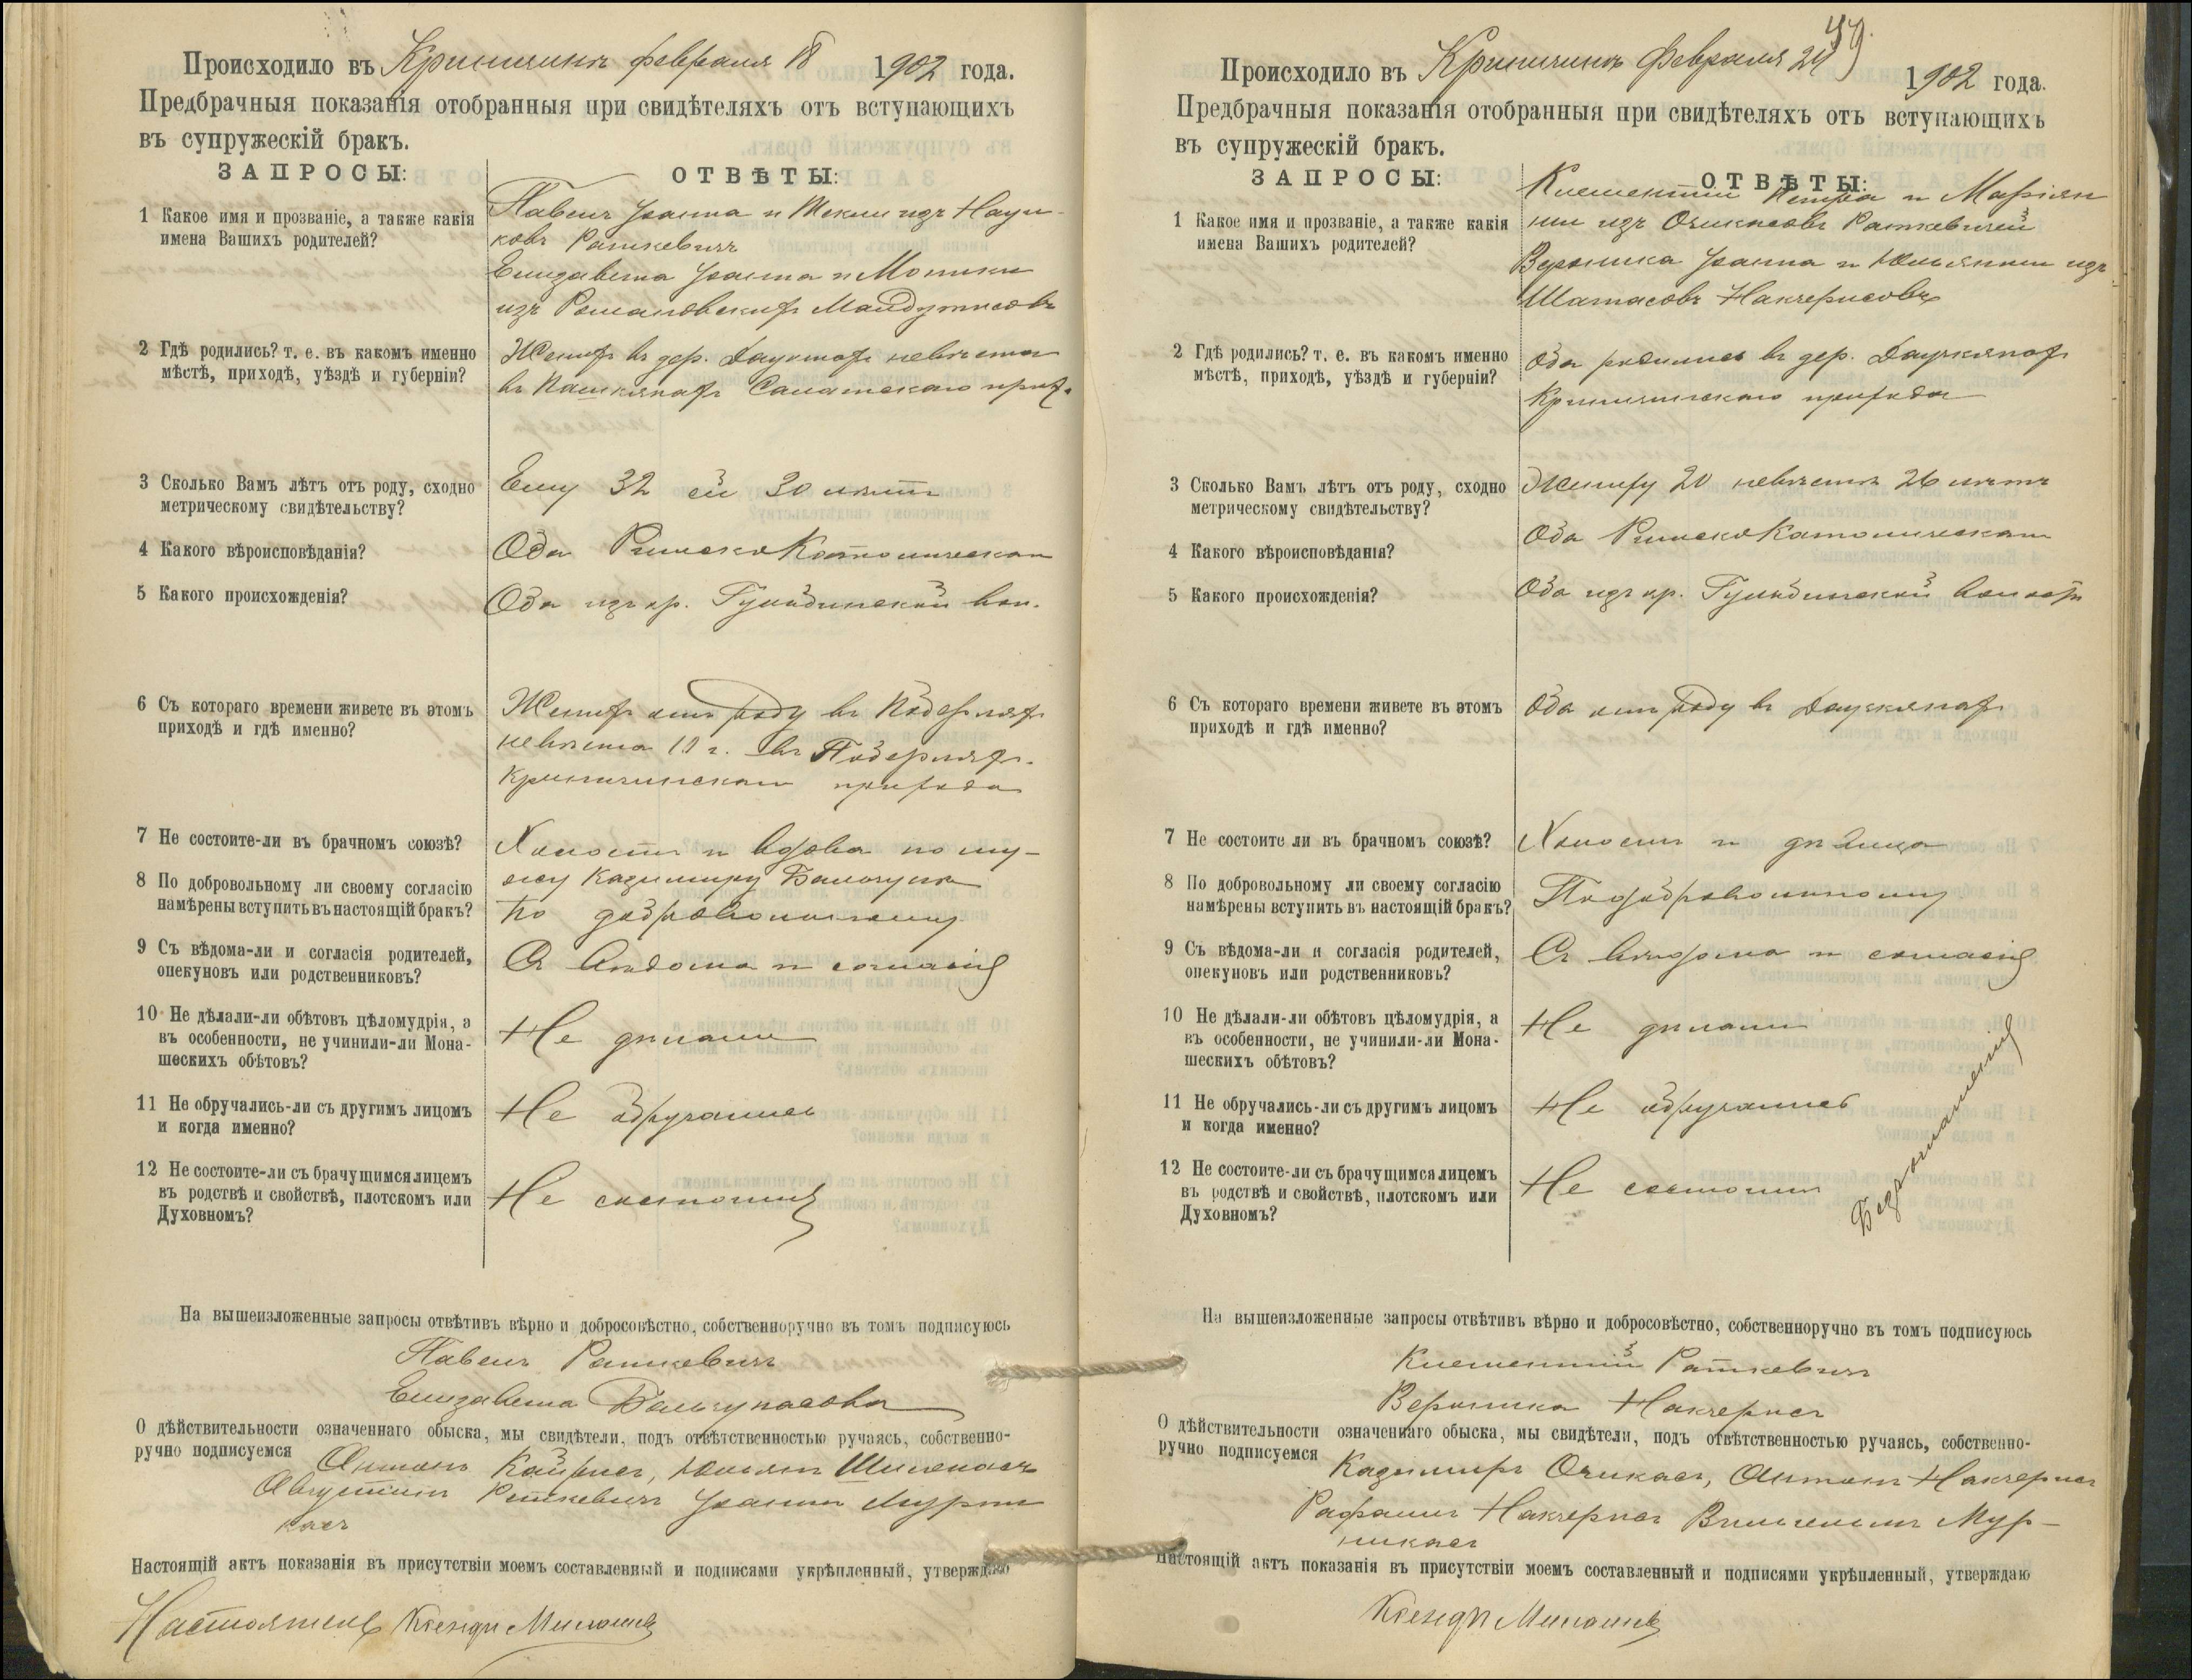 Происходило въ Криничинъ февраля 18 1902 года.
Предбрачныя показанія отобранныя при свидѣтеляхъ отъ вступающихъ
въ супружескій бракъ.
ЗАПРОСЫ: ОТВѢТЫ:
1 Какое имя и прозваніе, а также какія
имена Вашихъ родителей?
Павелъ Іоанна и Теклии изъ
Раткевичъ
Елизавета Іоанна и Моники
изъ Романовскихъ
2 Гдѣ родились? т. е. въ какомъ именно
мѣстѣ, приходѣ, уѣздѣ и губерніи?
Женихъ въ дер. невѣста
въ Салатскаго прих.
3 Сколько Вамъ лѣтъ отъ роду, сходно
метрическому свидѣтельству?
Ему 32 ей 30 лѣтъ
4 Какого вѣроисповѣданія?
Оба Римско Католическаго
5 Какого происхожденія?
Оба изъ кр. вол.
6 Съ котораго времени живете въ этомъ
приходѣ и гдѣ именно?
Женихъ отъ роду въ
невѣста въ
прихода
7 Не состоите-ли въ брачномъ союзѣ?
Холостъ и вдова по му-
жу Казимиру
8 По добровольному ли своему согласію
намѣрены вступить въ настоящій бракъ?
По добровольному
9 Съ вѣдома-ли и согласія родителей,
опекуновъ или родственниковъ?
Съ вѣдома и согласія
10 Не дѣлали-ли обѣтовъ цѣломудрія, а
въ особенности, не учинили-ли Мона-
шескихъ обѣтовъ?
Не дѣлали
11 Не обручались-ли съ другимъ лицомъ
и когда именно?
Не обручались
12 Не состоите-ли съ брачущимся лицемъ
въ родствѣ и свойствѣ, плотскомъ или
Духовномъ?
Не состоимъ
На вышеизложенные запросы отвѣтивъ вѣрно и добросовѣстно, собственноручно въ томъ подписуюсь
Павелъ Раткевичъ
Елизавета Бальчунасова
О дѣйствительности означеннаго обыска, мы свидѣтели, подъ отвѣтственностью ручаясь, собственно-
ручно подписуемся Антонъ
Августинъ Раткевичъ Іоаннъ Мурни
касъ
Настоящій актъ показанія въ присутствіи моемъ составленный и подписями укрѣпленный, утверждаю
Настоятель Ксендзъ
49
Происходило въ Криничинъ Февраля 24 1902 года.
Предбрачныя показанія отобранныя при свидѣтеляхъ отъ вступающихъ
въ супружескій бракъ.
ЗАПРОСЫ: ОТВѢТЫ:
1 Какое имя и прозваніе, а также какія
имена Вашихъ родителей?
Клементій Петра и Маріян
ны изъ Очикасовъ Раткевичей
Вероника Іоанна и Юльянны изъ
Шатасовъ Накчерисовъ
2 Гдѣ родились? т. е. въ какомъ именно
мѣстѣ, приходѣ, уѣздѣ и губерніи?
Оба родились въ дер.
Криничинскаго прихода
3 Сколько Вамъ лѣтъ отъ роду, сходно
метрическому свидѣтельству?
Жениху 20 невѣстѣ 26 лѣтъ
4 Какого вѣроисповѣданія?
Оба Римско Католическаго
5 Какого происхожденія?
Оба изъ кр. волости
6 Съ котораго времени живете въ этомъ
приходѣ и гдѣ именно?
Оба отъ роду въ
7 Не состоите ли въ брачномъ союзѣ?
Холостъ и дѣвица
8 По добровольному ли своему согласію
намѣрены вступить въ настоящій бракъ?
По добровольному
9 Съ вѣдома-ли и согласія родителей,
опекуновъ или родственниковъ?
Съ вѣдома и согласія
10 Не дѣлали-ли обѣтовъ цѣломудрія, а
въ особенности, не учинили-ли Мона-
шескихъ обѣтовъ?
Не дѣлали
11 Не обручались-ли съ другимъ лицомъ
и когда именно?
Не обручались
12 Не состоите-ли съ брачущимся лицемъ
въ родствѣ и свойствѣ, плотскомъ или
Духовномъ?
Не состоимъ
На вышеизложенные запросы отвѣтивъ вѣрно и добросовѣстно, собственноручно въ томъ подписуюсь
Клементій Раткевичъ
Вероника Накчерисъ
О дѣйствительности означеннаго обыска, мы свидѣтели, подъ отвѣтственностью ручаясь, собственно-
ручно подписуемся Казимиръ Очикасъ, Антонъ Накчерисъ
Рафаилъ Накчерисъ Вильгельмъ Мур-
никасъ
Настоящій актъ показанія въ присутствіи моемъ составленный и подписями укрѣпленный, утверждаю
Ксендзъ